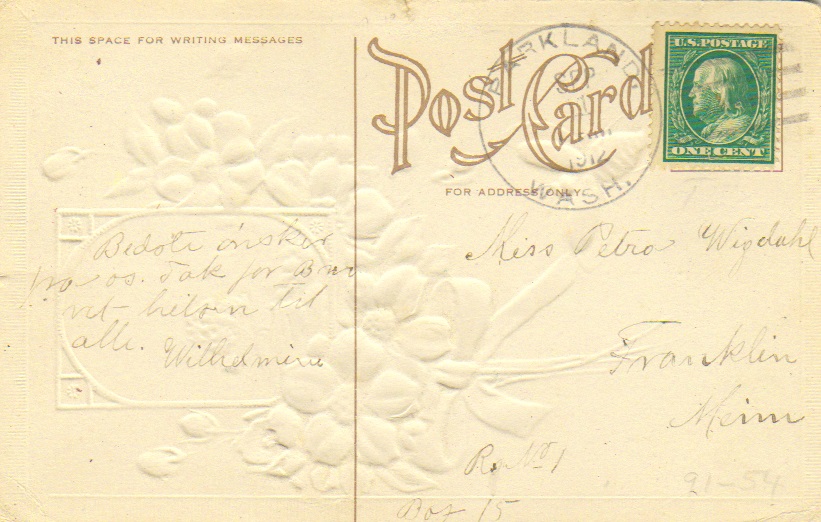 THIS SPACE FOR WRITING MESSAGES
Post Card
PARKLAND
SEP
1912
WASH.
U.S. POSTAGE
ONE CENT
FOR ADDRESS ONLY
Bedste ønsker
fra os. Tak for Bre
vet hilsen til
alle. Wilhelmine
Miss Petra Wigdahl
Franklin
Minn
R. No 1
Box 15
91-54